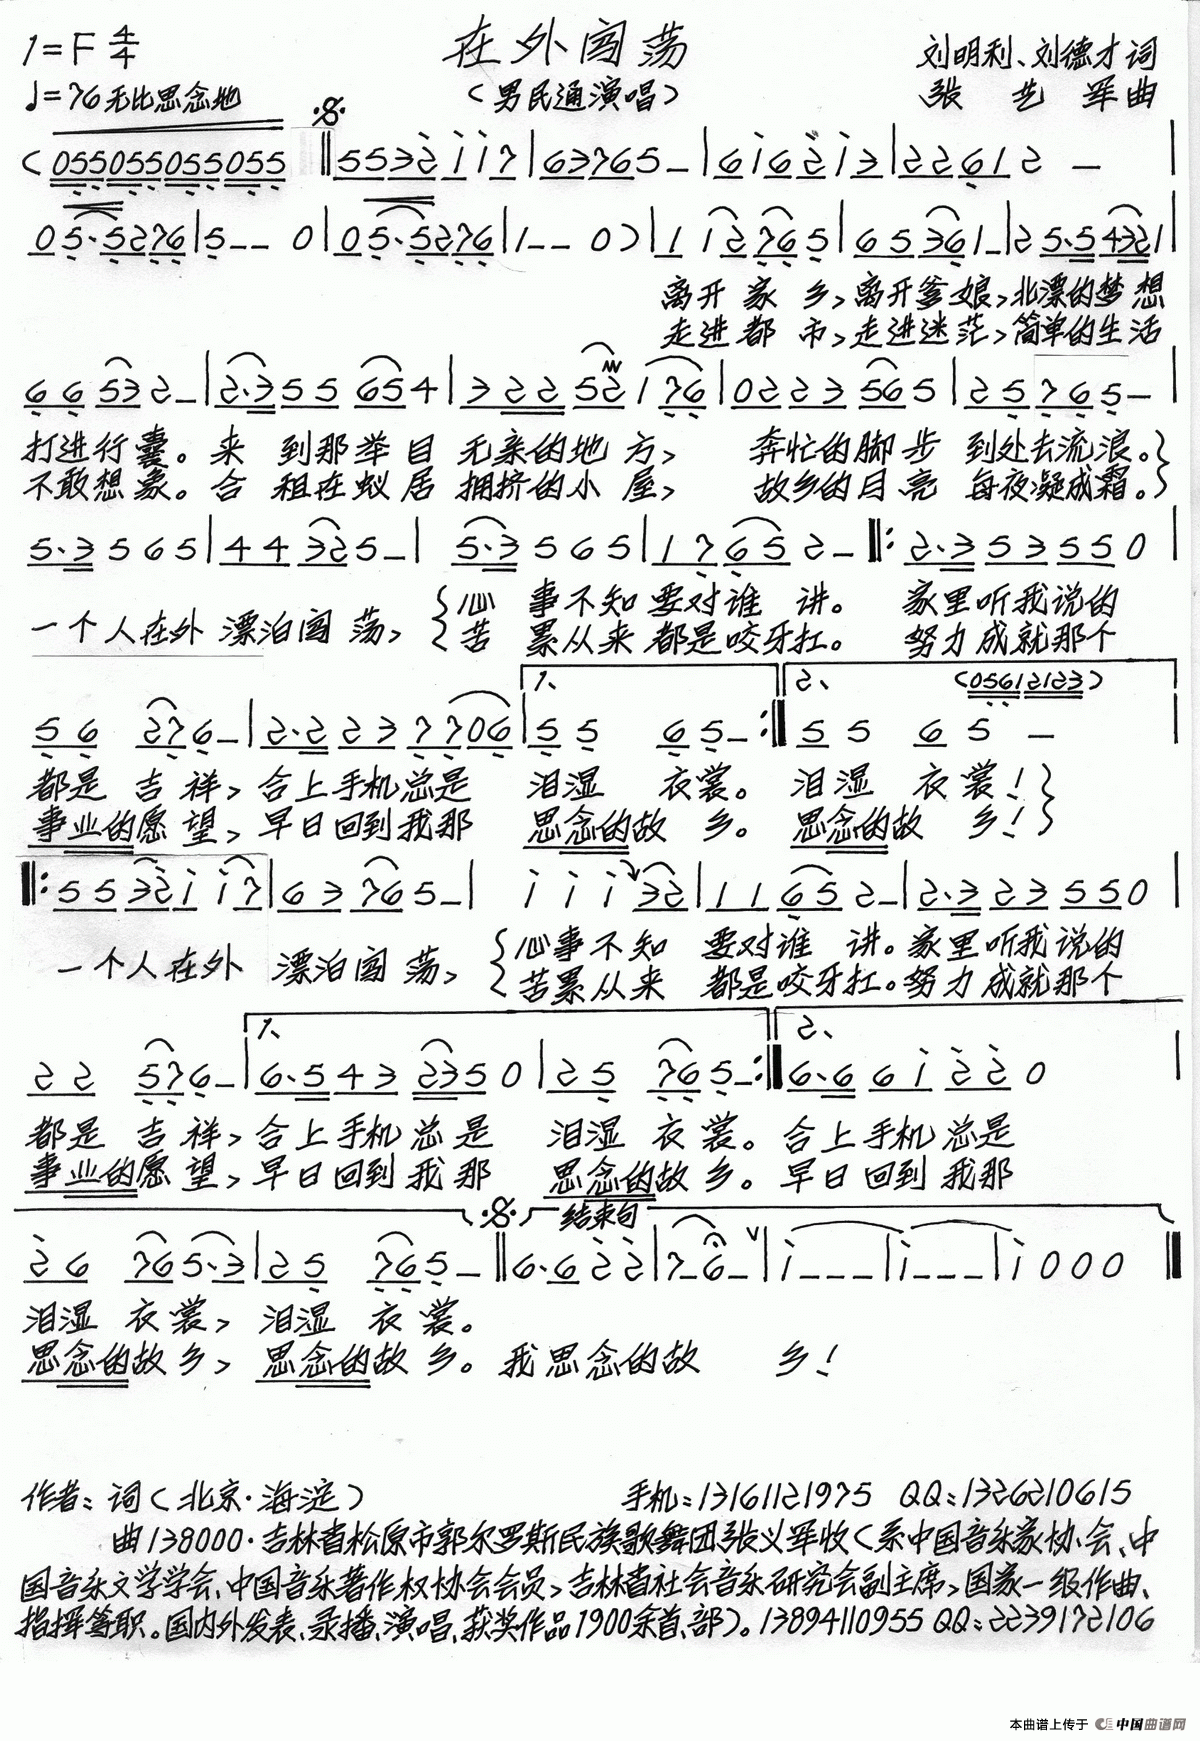 在外闯荡
1=F 4/4
刘明利、刘德才词
♩=76 无比思念地
(男民通演唱)
张艺军曲
(055055055055 ‖5532117|63765-|616213|22612 -|
05·5276|5--0|05·5276|1--0)|112765|65361-|25·54321|
离开家乡,离开爹娘,北漂的梦想
走进都市,走进迷茫,简单的生活
66532-|2·355654|32252176|02235665|25765-|
打进行囊。来到那举目无亲的地方,奔忙的脚步到处去流浪。
不敢想象。合租在蚁居拥挤的小屋,故乡的月亮每夜凝成霜。
5·3565|44325-|5·3565|17652-‖:2·353550|
一个人在外漂泊闯荡,
心事不知要对谁讲。家里听我说的
苦累从来都是咬牙扛。努力成就那个
1、
2、
(05612123)
56276-|2·2237706|5565-:‖5565-
都是吉祥,合上手机总是泪湿衣裳。泪湿衣裳!
事业的愿望,早日回到我那思念的故乡。思念的故乡!
‖:5532117|63765-|11132|11652-|2·323550|
一个人在外漂泊闯荡,
心事不知要对谁讲。家里听我说的
苦累从来都是咬牙扛。努力成就那个
1、
2、
22576-|6·5432350|25765-:‖6·661220
都是吉祥,合上手机总是泪湿衣裳。合上手机总是
事业的愿望,早日回到我那思念的故乡。早日回到我那
结束句
26765·3|25765-‖6·622|7-6-|1---|1---|1000‖
泪湿衣裳,泪湿衣裳。
思念的故乡,思念的故乡。我思念的故乡!
作者:词(北京·海淀) 手机:13161121975 QQ:1326210615
曲138000·吉林省松原市郭尔罗斯民族歌舞团张义军收(系中国音乐家协会、中
国音乐文学学会、中国音乐著作权协会会员,吉林省社会音乐研究会副主席,国家一级作曲、
指挥等职。国内外发表、录播、演唱、获奖作品1900余首、部)。13894110955 QQ:2239172106
本曲谱上传于 中国曲谱网